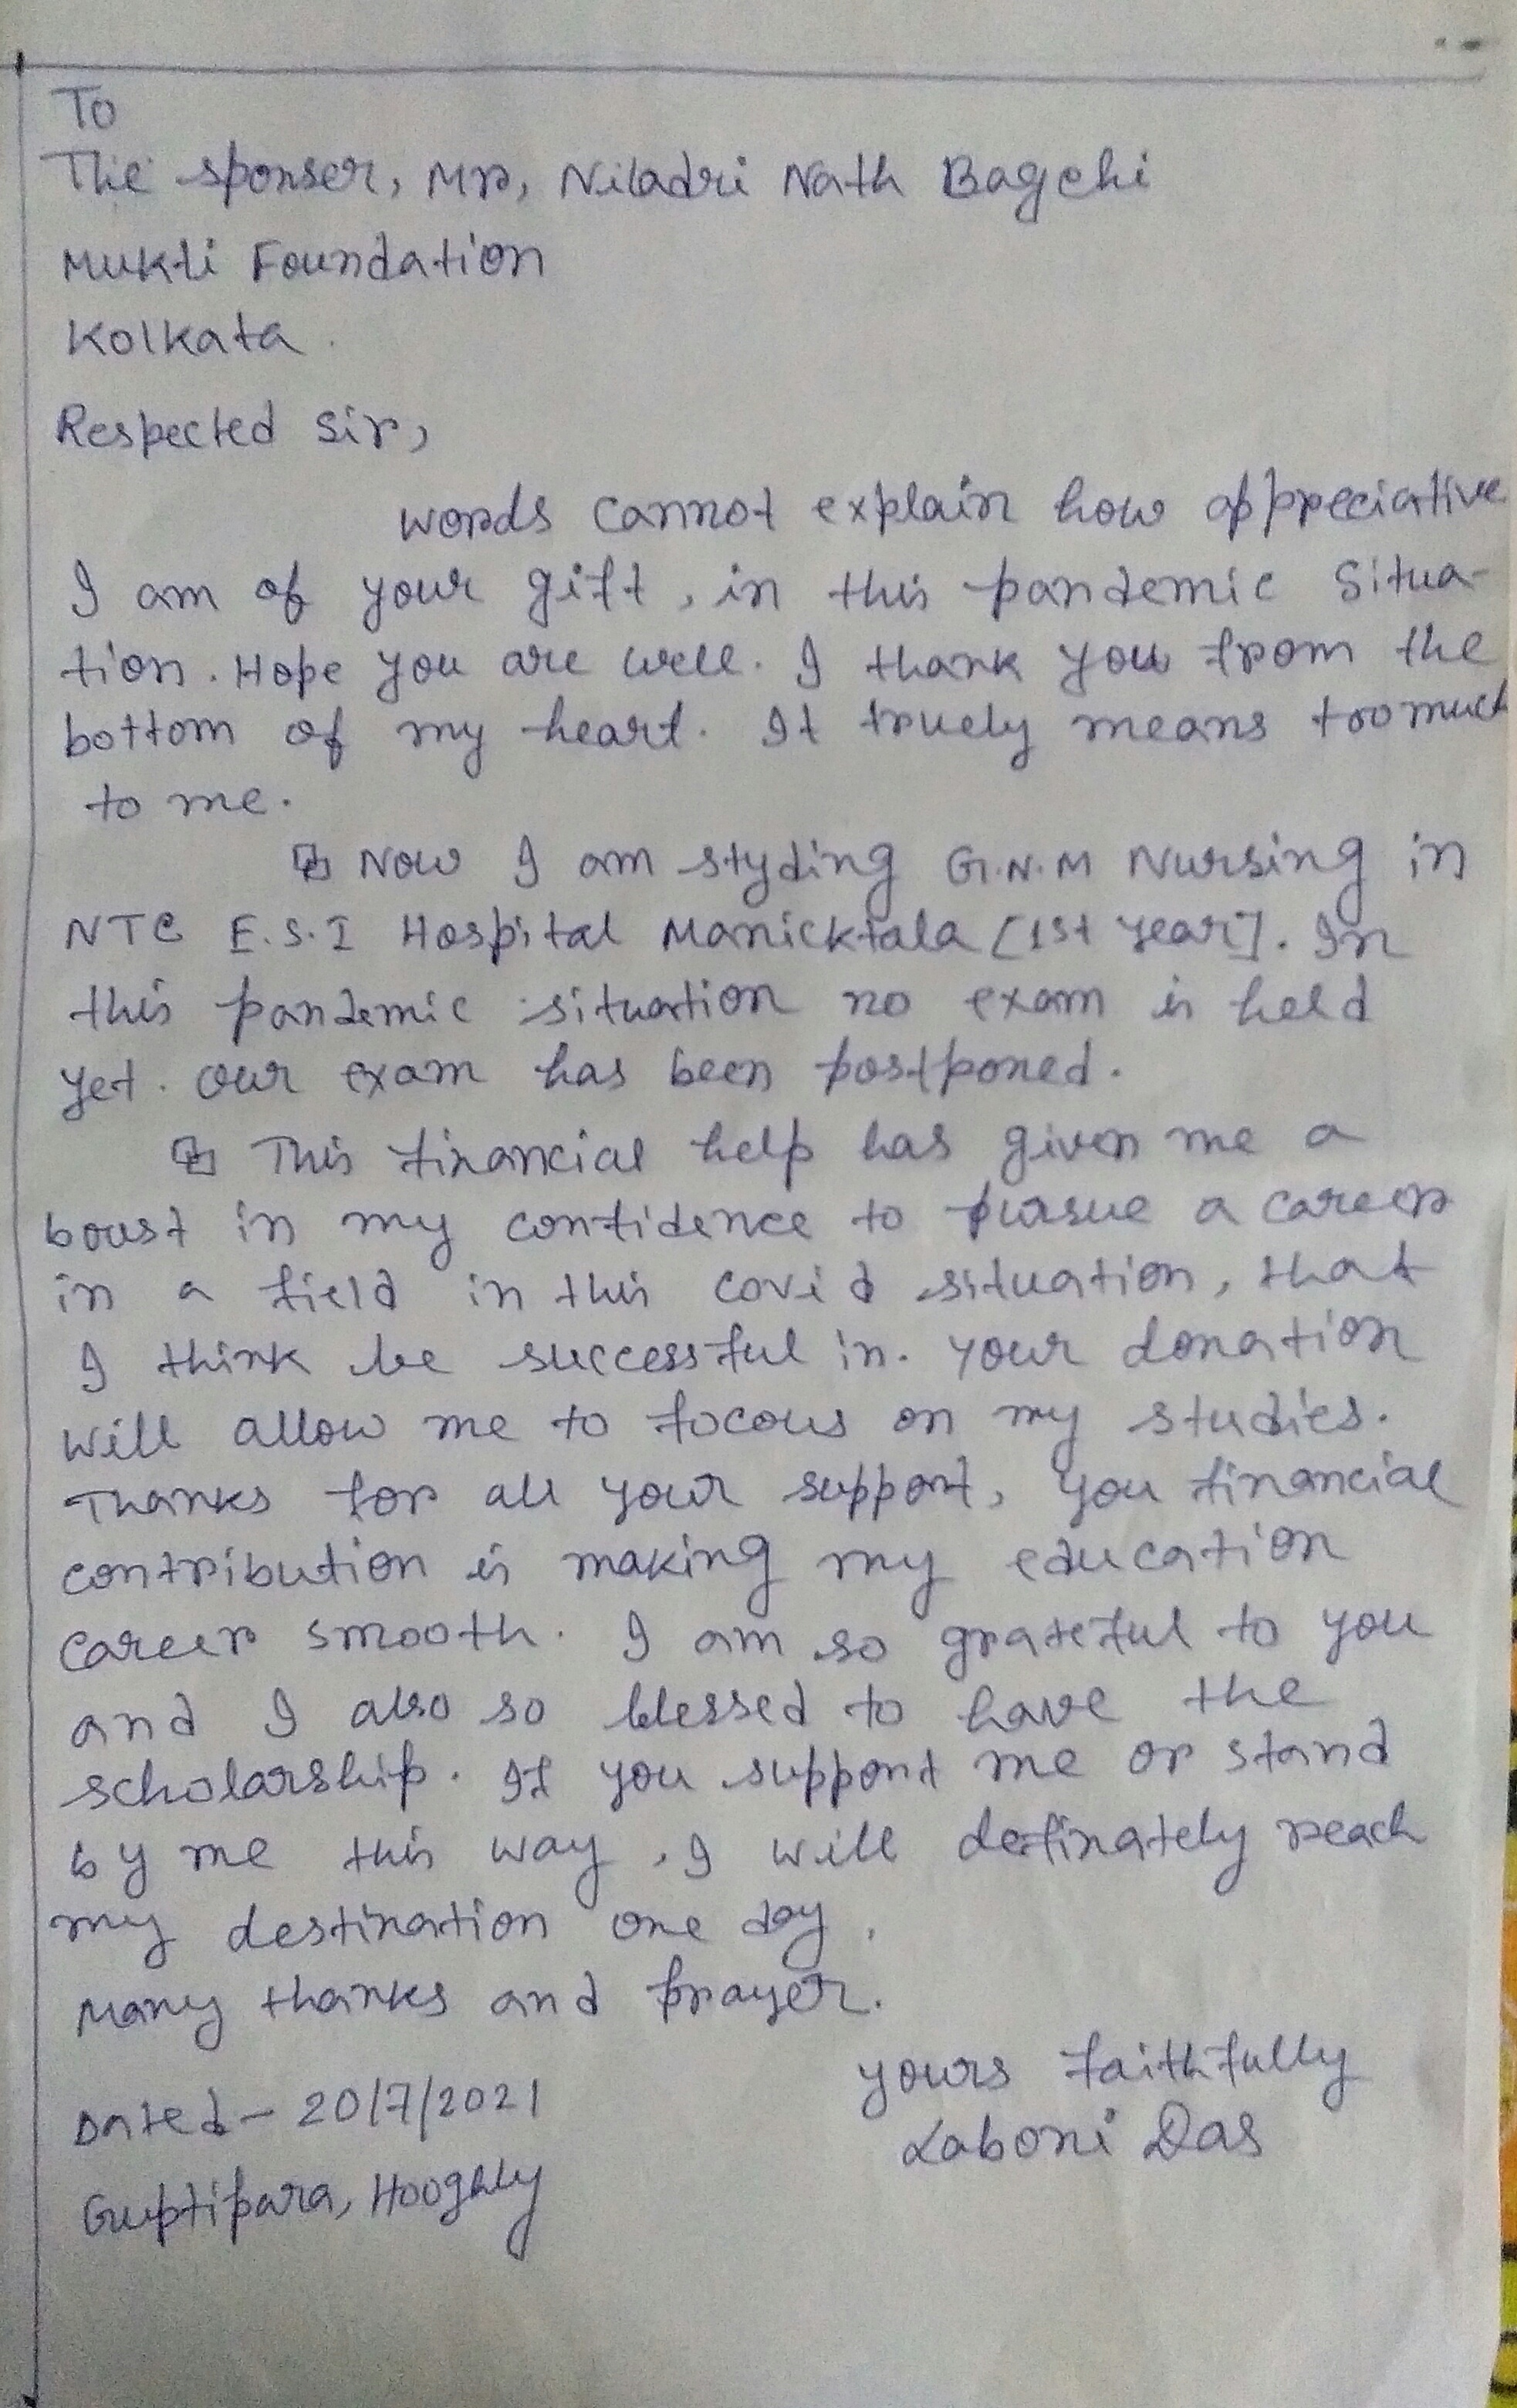 To
The sponser, Mr, Niladri Nath Bagchi
Mukti Foundation
Kolkata.
Respected Sir,
words cannot explain how appreciative
I am of your gift, in this pandemic Situa-
tion. Hope you are well. I thank you from the
bottom of my heart. It truely means too much
to me.
Now I am styding G.N.M Nursing in
NTC E.S.I Hospital Manicktala [1st year]. In
this pandemic situation no exam is held
yet. Our exam has been postponed.
This financial help has given me a
boust in my confidence to pursue a career
in a field in this covid situation, that
I think be successful in. Your donation
will allow me to focous on my studies.
Thanks for all your support, you financial
contribution is making my education
career smooth. I am so grateful to you
and I also so blessed to have the
scholarship. If you support me or stand
by me this way, I will definately reach
my destination one day.
Many thanks and prayer.
yours faithfully
Laboni Das
Dated - 20/7/2021
Guptipara, Hooghly